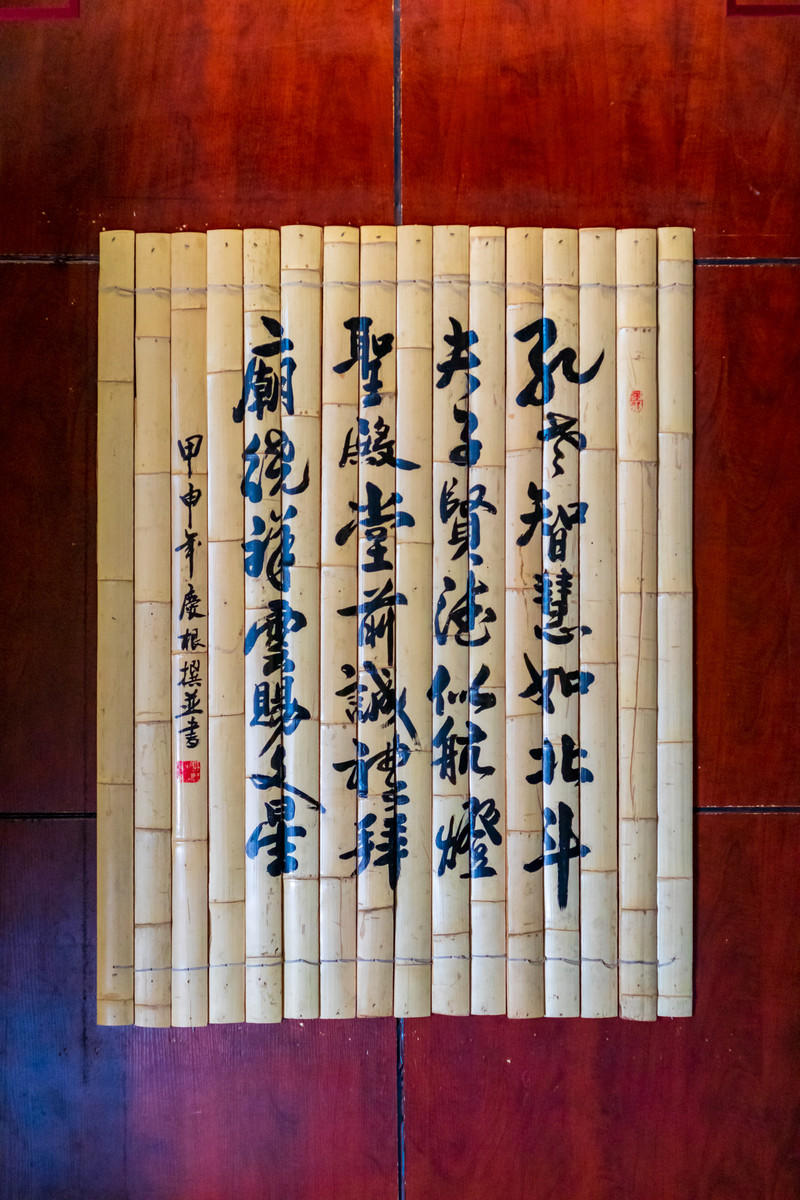 孔智慧如北斗
夫子賢德似航燈
聖殿堂前誠禮拜
廟繞祥雲賜文星
甲申年慶根撰並書